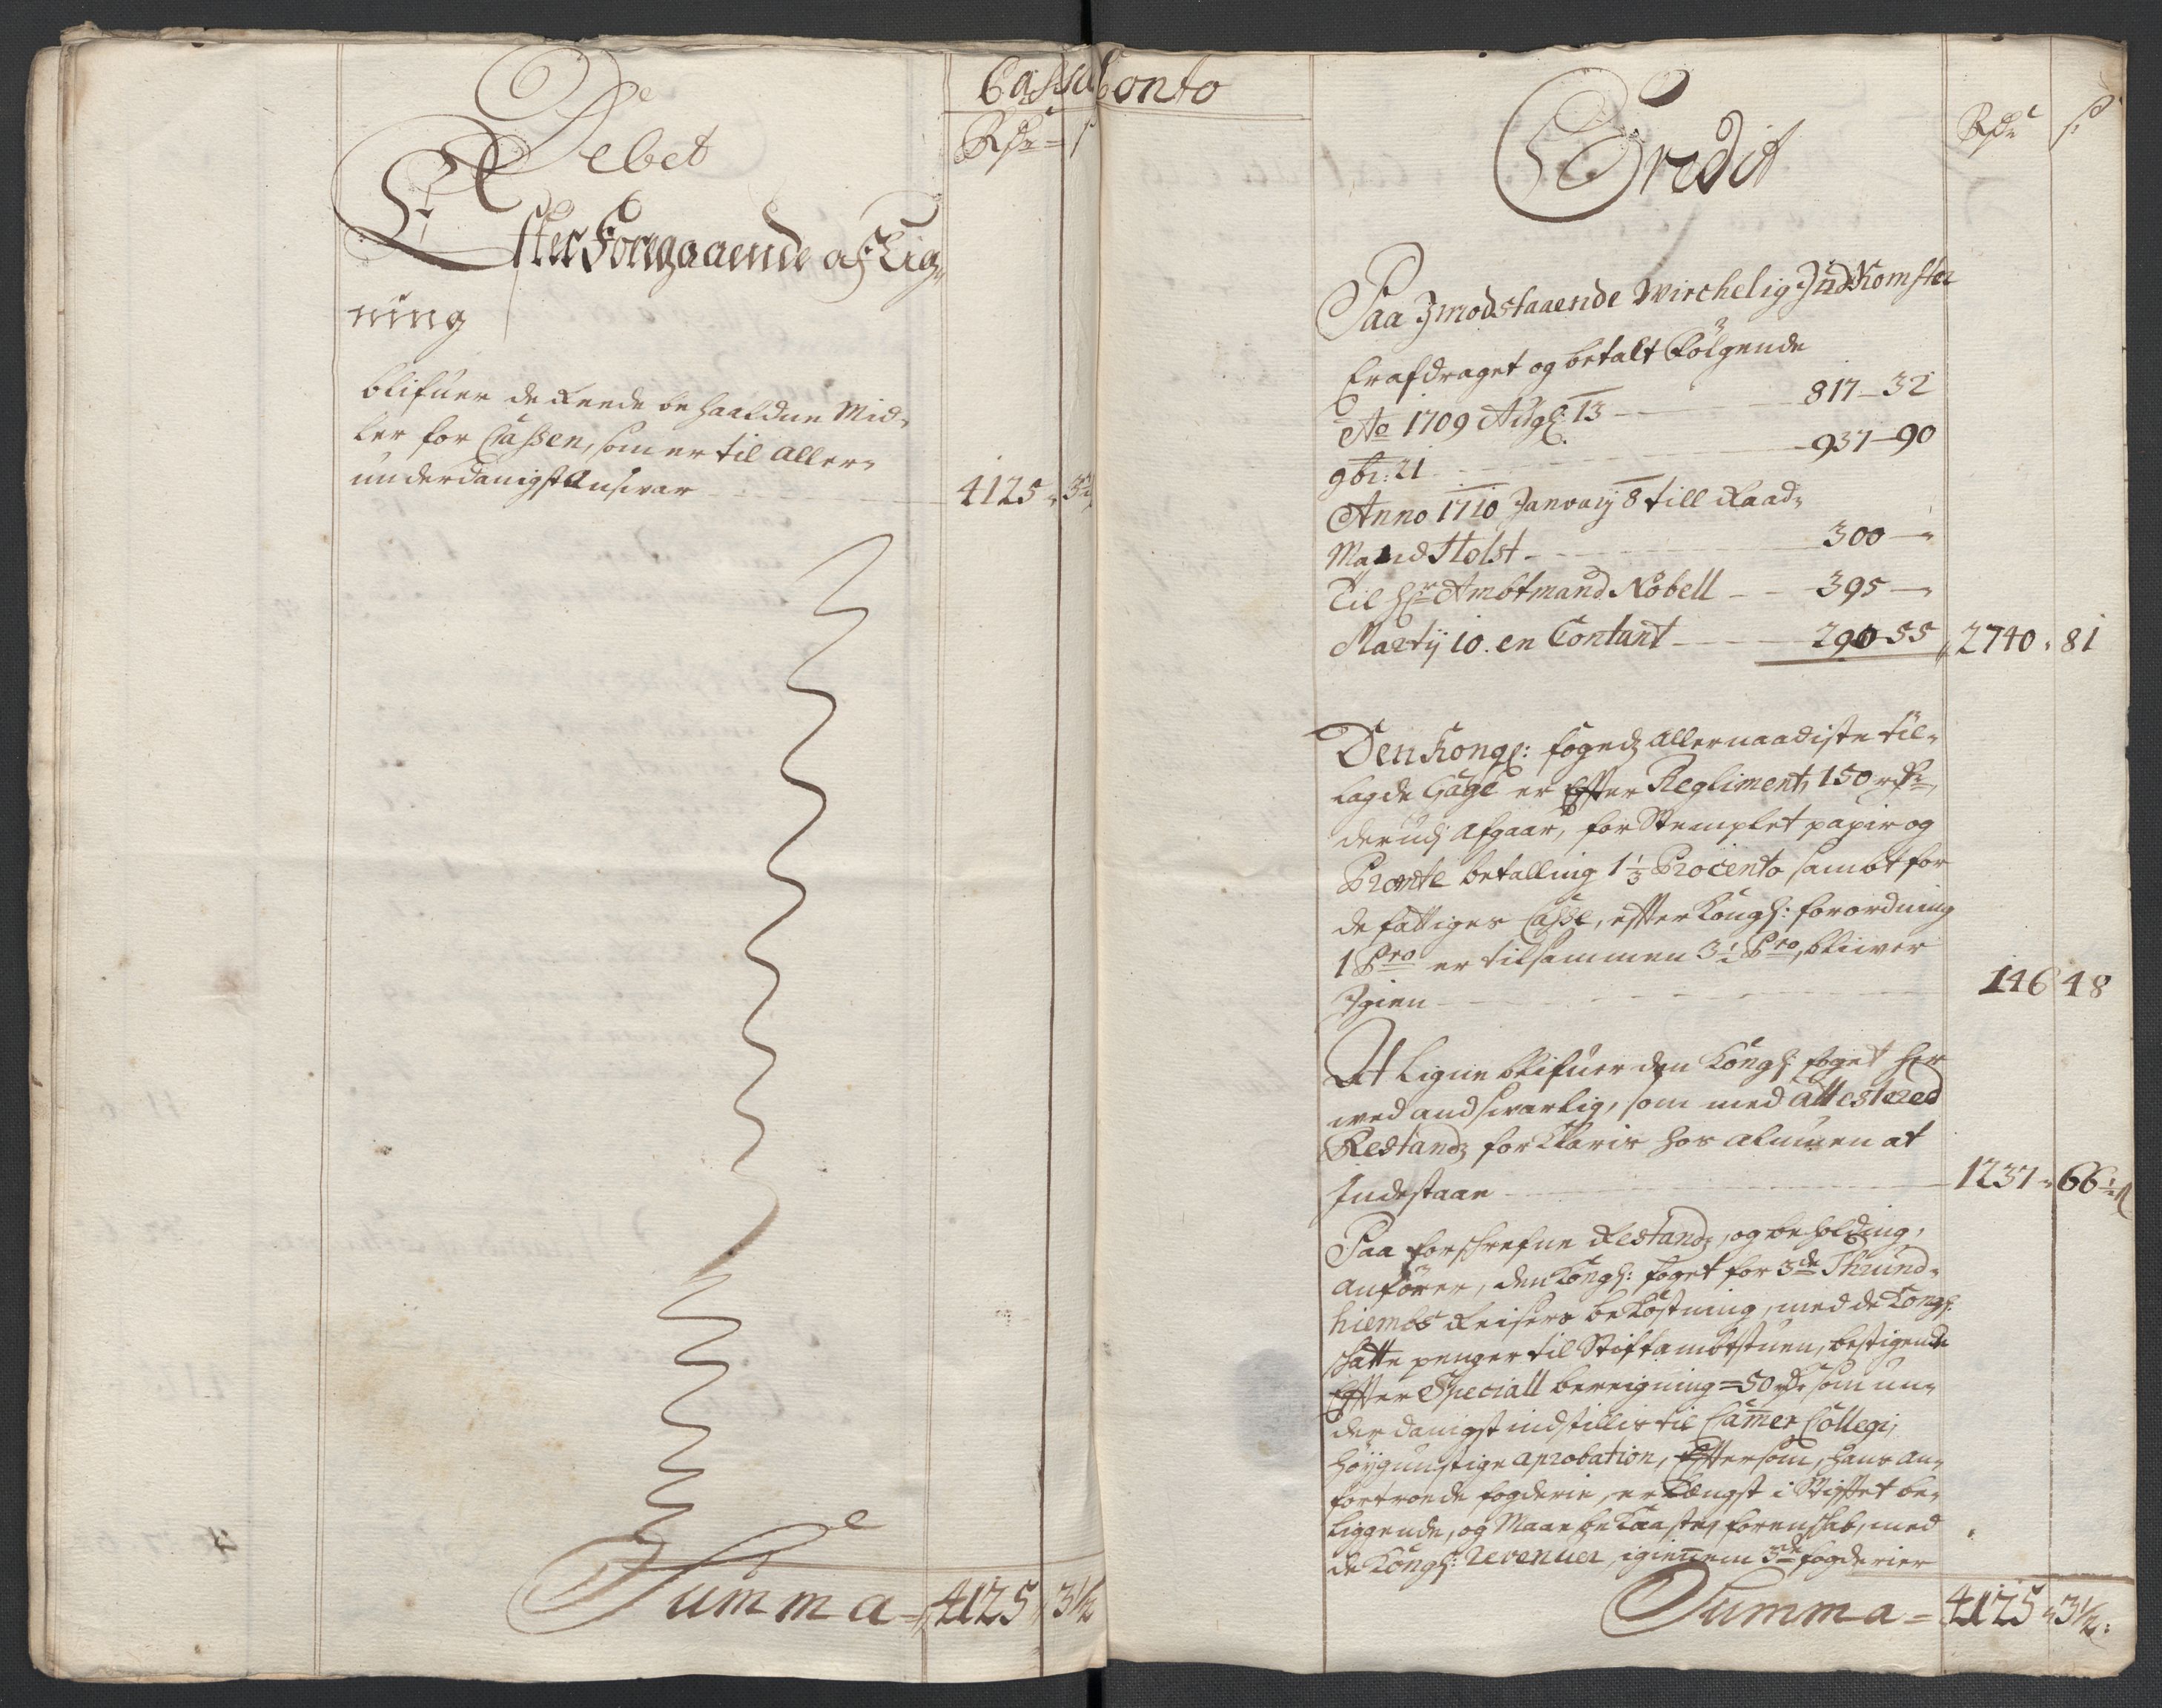 Cassa Conto
Debet
Rdr ß
Efter Foregaaende af Lig-
ning
blifuer de Reede behaaldne Mid-
ler for Cassen, som er til Aller-
underdanigst Ansvar 4125 - 3½
Summa = 4125 " 3½
Credit
Rdr ß
Paa Imodstaaende Wirchelig Indkomster
Er afdraget og betalt Følgende
Ao 1709 Augl: 13 817 - 32
9br: 21 937 - 90
Anno 1710 Januarij 8 till Raad-
Mand Holst 300 - "
Til Hr Ambtmand Nobell 395 - "
Martij 10. en Contant 290 - 55 2740 " 81
Den Kongl: fogedz allernaadiste til-
lagde Gage er Efter Regliment, 150 rdr,
derudj afgaar, for Stemplet papir og
betalling 1⅓ Procento sambt for
de fattiges Casse, efter Kongl: forordning
1 Pro er tilsammen Pro, bliiver
Igien 146 48
At Ligne blifuer den Kongl: foget her
wed andsvarlig, som med attestered
Restandz forklaris hos almuen at
Indestaae 1237 " 66½
Paa forschrefne Restandz, og beholding,
anfører, den Kongl: foget for 3de Thrund-
hiembs Reisers bekostning, med de Kongl:
schatte penger til Stiftambtstuen, bestigende
Efter Speciall bereigning = 50 rdr som un-
derdanigst indstillis til Camer Collegi,
høygunstige aprobation, Eftersom, hans an-
fortroede fogderie, er Længst i Stiftet be-
liggende, og Maae bekaaste, forenschab, med
de Kongl: revenuer, igiennem 3de fogderier
Summa = 4125 " 3½: